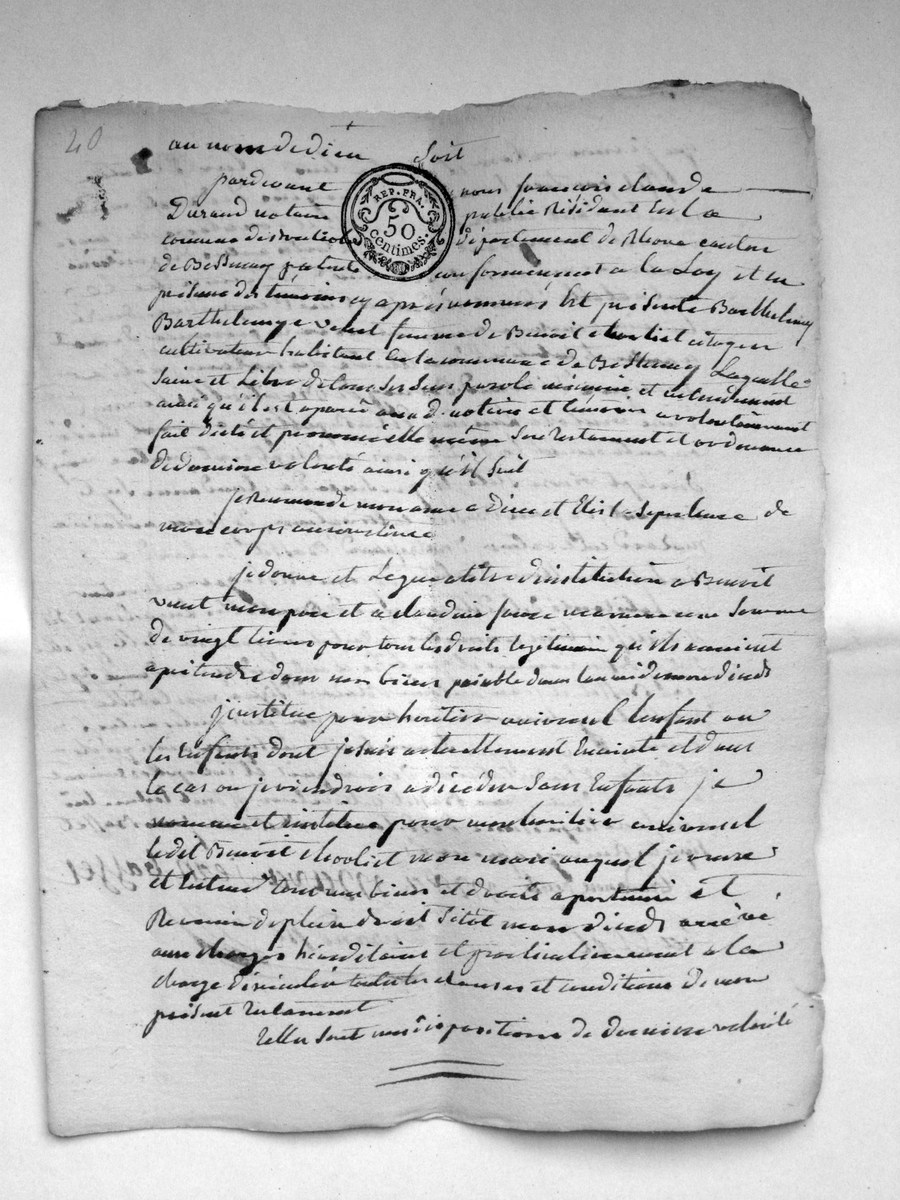 40
au nom de dieu soit
pardevant nous francois claude
Durand notaire public Résidant En La
commune de département de Rhone canton
de Bessenay patenté conformement a la Loy et en
présence des témoins cy après nommés fut présente Barthelemy
Barthelemye vunt femme de Benoit citoyen
cultivateur habitant En la commune de Bessenay Laquelle
Saine et Libre de tous ses sens parole mémoire et entendement
ainsi qu'il est aparu aud. notaire et témoins a volontairement
fait dicté et prononcé elle même Son testament et ordonnance
de dernière volonté ainsi qu'il suit
je Recommande mon ame a dieu et Elis Sepulture de
mon corps
je donne et Legue a titre d'institution a Benoit
vunt mon père et a claudine ma mère une Somme
de vingt livres pour tous les droits légitimaire qu'ils auroient
a prétendre dans mes biens paiable dans de mon décès
j'institue pour heritier universel l'enfant ou
les Enfants dont je suis actuellement Enceinte et dans
le cas ou je viendrois a décéder Sans Enfants je
nomme et institue pour mon heritier universel
ledit Benoit mon mari auquel je veux
et entend tous mes biens et droits apartenir et
Revenir de plein droit Sitôt mon décès arrivé
aux charges héréditaires et particulierement a la
charge d'exécuter toutes les clauses et conditions de mon
présent testament
telles sont mes dispositions de derniere volonté
REP. FRA.
50
centimes.